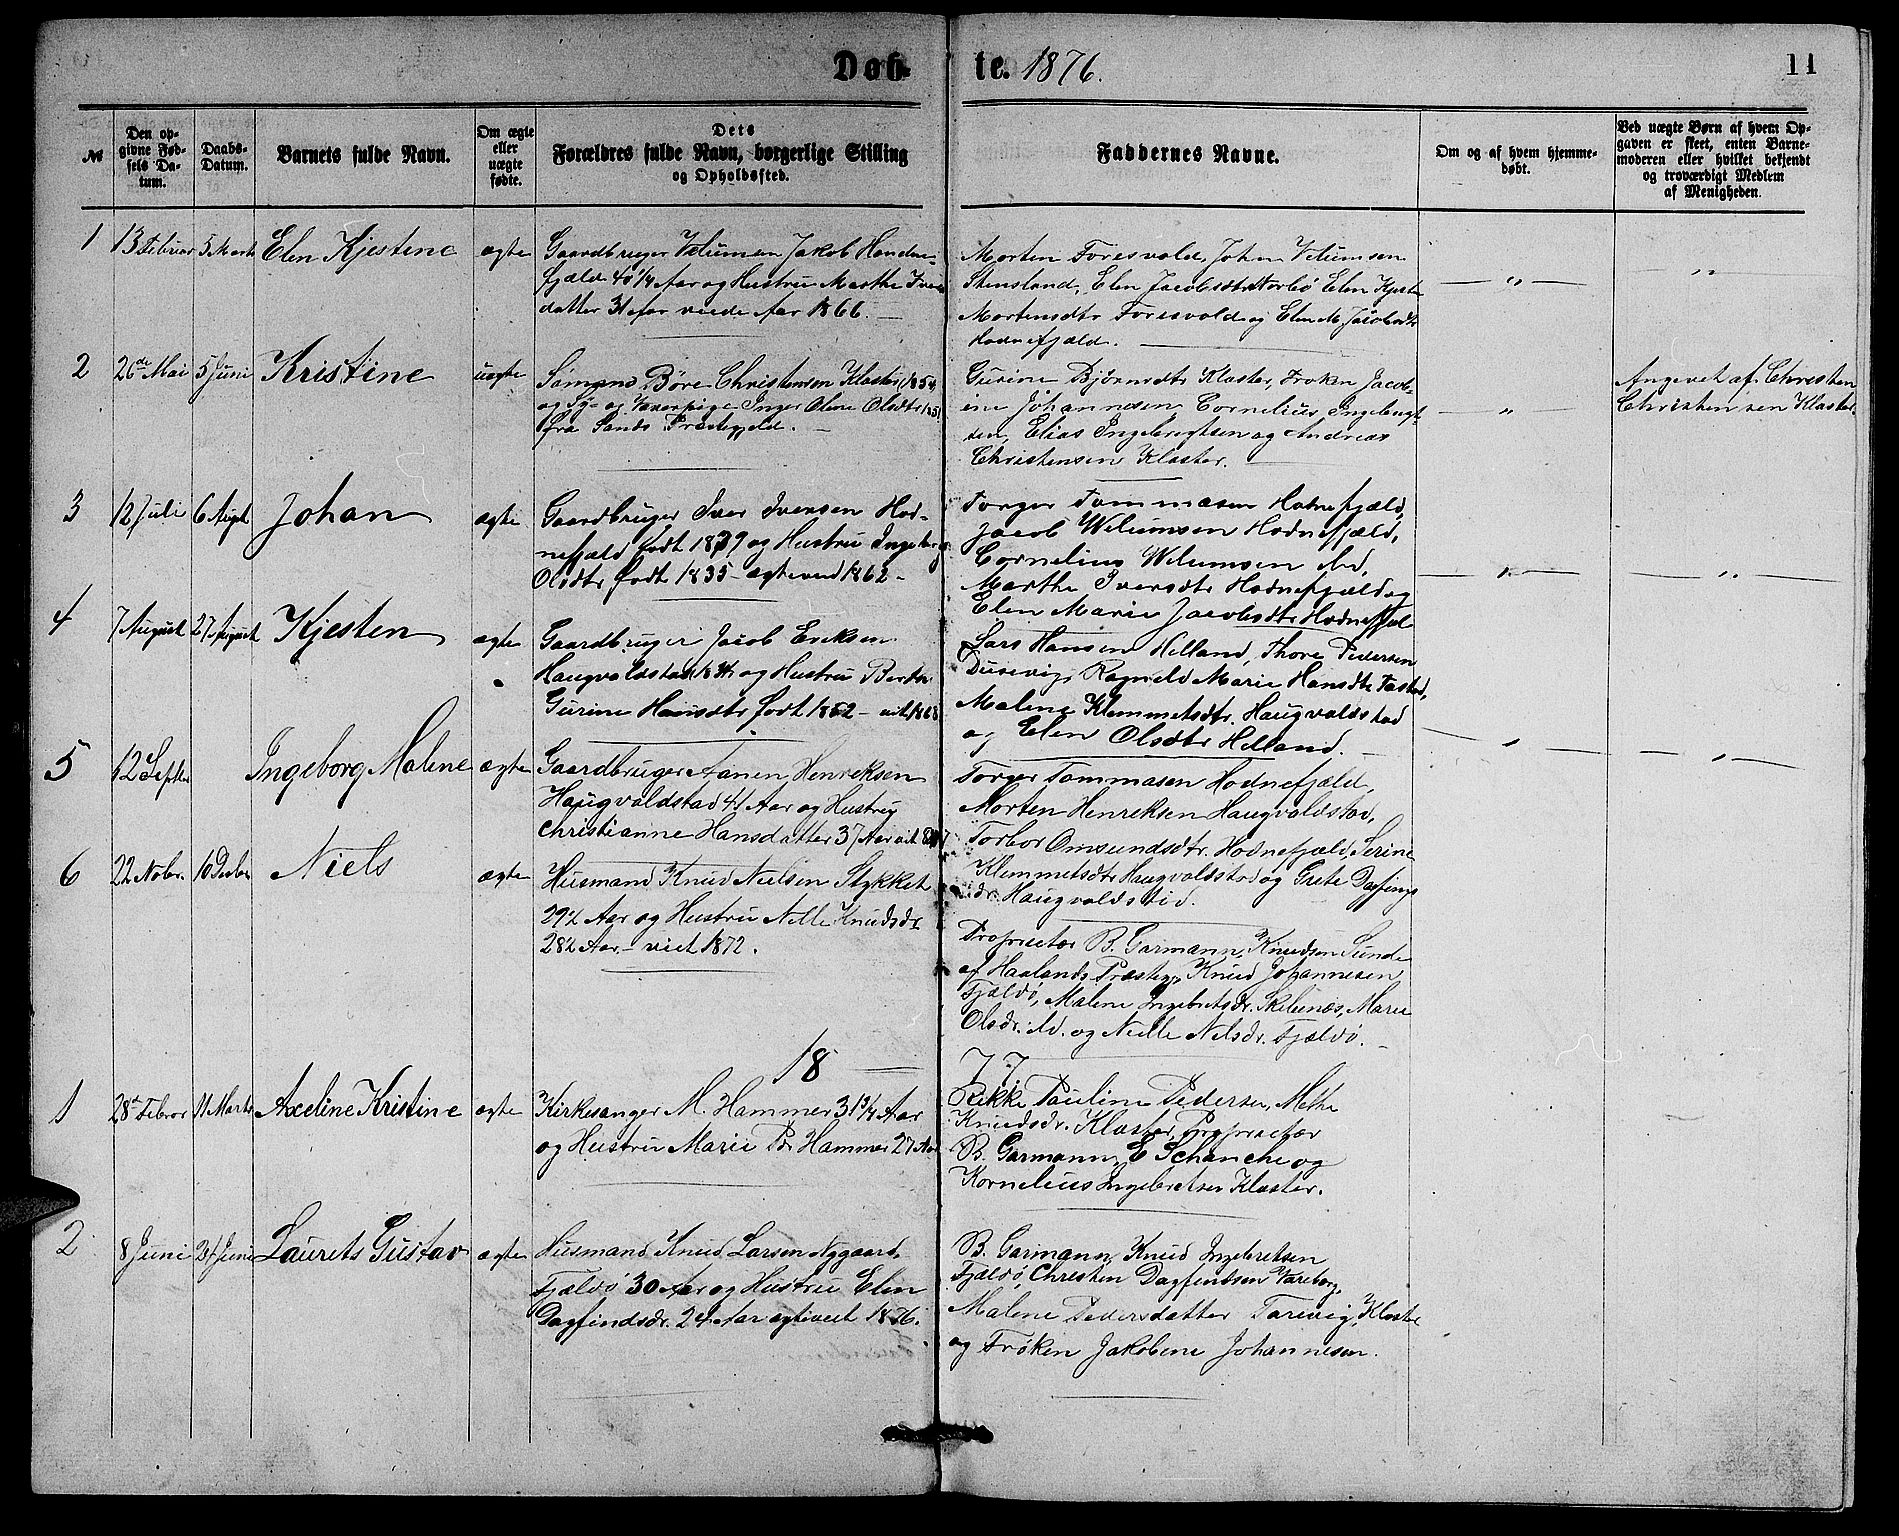 Døb-
te. 1876.
11
№
Den op-
givne Fød-
sels Da-
tum.
Daabs-
Datum.
Barnets fulde Navn.
Om ægte
eller
uægte
fødte.
Dets
Forældres fulde Navn, borgerlige Stilling
og Opholdssted.
Faddernes Navne.
Om og af hvem hjemme-
døbt.
Ved uægte Børn af hvem Op-
gaven er skeet, enten Barne-
moderen eller hvilket bekjendt
og troværdigt Medlem
af Menigheden.
1 13 Februar 5 Marts Elen Kjestine ægte
Gaardbruger Velumsen Jakob Hodne-
fjæld 40 1/4 Aar og Hustru Marthe Ivers
datter 31 Aar viede Aar 1866. —
Morten Foresvold, John Velumsen
Stensland, Elen Jacobsdtr Norbø Elen Kjesti
Mortensdtr Foresvold og Elen M. Jacobsdtr
Hodnefjæld.
— " —
— " —
2 26de Mai 5 Juni Kristine uægte
Sømand Børe Christensen Kloster (1854)
og Sy- og Væverpige Inger Oline Olsdtr 185
fra Sands Præstegjeld. —
Gurine Bjørnsdtr Kloster, Frøken Jacob-
ine Johannesen Cornelius Ingebrigt-
sen, Elias Ingebregtsen og Andreas
Christensen Kloster.
— " —
Angevet af Christen
Christensen Kloster.
3 12 Juli 6 Augt Johan ægte
Gaardbruger Iver Iversen Hod-
nefjæld født 1839 og Hustru Ingeborg
Olsdtr født 1835 - ægteviet 1862 -
Torger Tommasen Hodnefjæld,
Jacob Welumsen Hodnefjæld,
Cornelius Welumsen ibd,
Marthe Iversdtr Hodnefjæld og
Elen Marie Jacobsdtr Hodnefjel
— " —
— " —
4 7 August 27 August Kjesten ægte
Gaardbruger Jacob Eriksen
Haugvaldstad 1834 og Hustru Berthe
Gurine Hansdtr født 1842 - viet 1868
Lars Hansen Helland, Thore Pedersen
Dusevig, Ragnild Marie Hansdtr Fastad,
Malene Klemmetsdtr. Haugvaldstad
og Elen Olsdtr Helland.
— " —
— " —
5 12 Septer Ingeborg Malene ægte
Gaardbruger Aanen Henreksen
Haugvaldstad 41 Aar og Hustru
Christianne Hansdatter 37 Aar viet
Torger Tommasen Hodnefjæld,
Morten Henreksen Haugvaldstad,
Torbor Omsundsdtr. Hodnefjæld, Serine
Klemmetsdtr Haugvaldstad og Grete Dagfings
dr. Haugvaldstad.
6 22 Nobr. 10 Decbr Niels ægte
Husmand Knud Nielsen Stykket
29 1/2 Aar og Hustru Nille Knudsdr
28 1/2 Aar - viet 1872.
Proprietær B. Garmann, Knudsen Sunde
af Haalands Præsteg, Knud Johannesen
Fjæløø, Malene Ingebretsdr. Skeienæs, Marie
Olsdr. ibd. og Nille Nilsdr. Fjældø. —
18
77.
1 28d Febror 11 Marts Axeline Kristine ægte
Kirkesanger M. Hammer 31 3/4 Aar
og Hustru Marie Pr. Hammer 27 Aar
Rikke Pauline Pedersen, Mette
Knudsdr. Kloster, Proprietær
B. Garmann, E Schanche og
Kornelius Ingebretsen Kloster.
2 8 Juni 24 Juni Laurets Gustav ægte
Husmand Knud Larsen Nygaard,
Fjældø 30 Aar og Hustru Elen
Dagfindsdr. 24 Aar ægteviet 1876.
B. Garmann, Knud Ingebretsen
Fjældø, Christen Dagfindsen Vareborg,
Malene Pedersdatter Tarevig, Kloster
og Frøken Jakobine Johannesen.